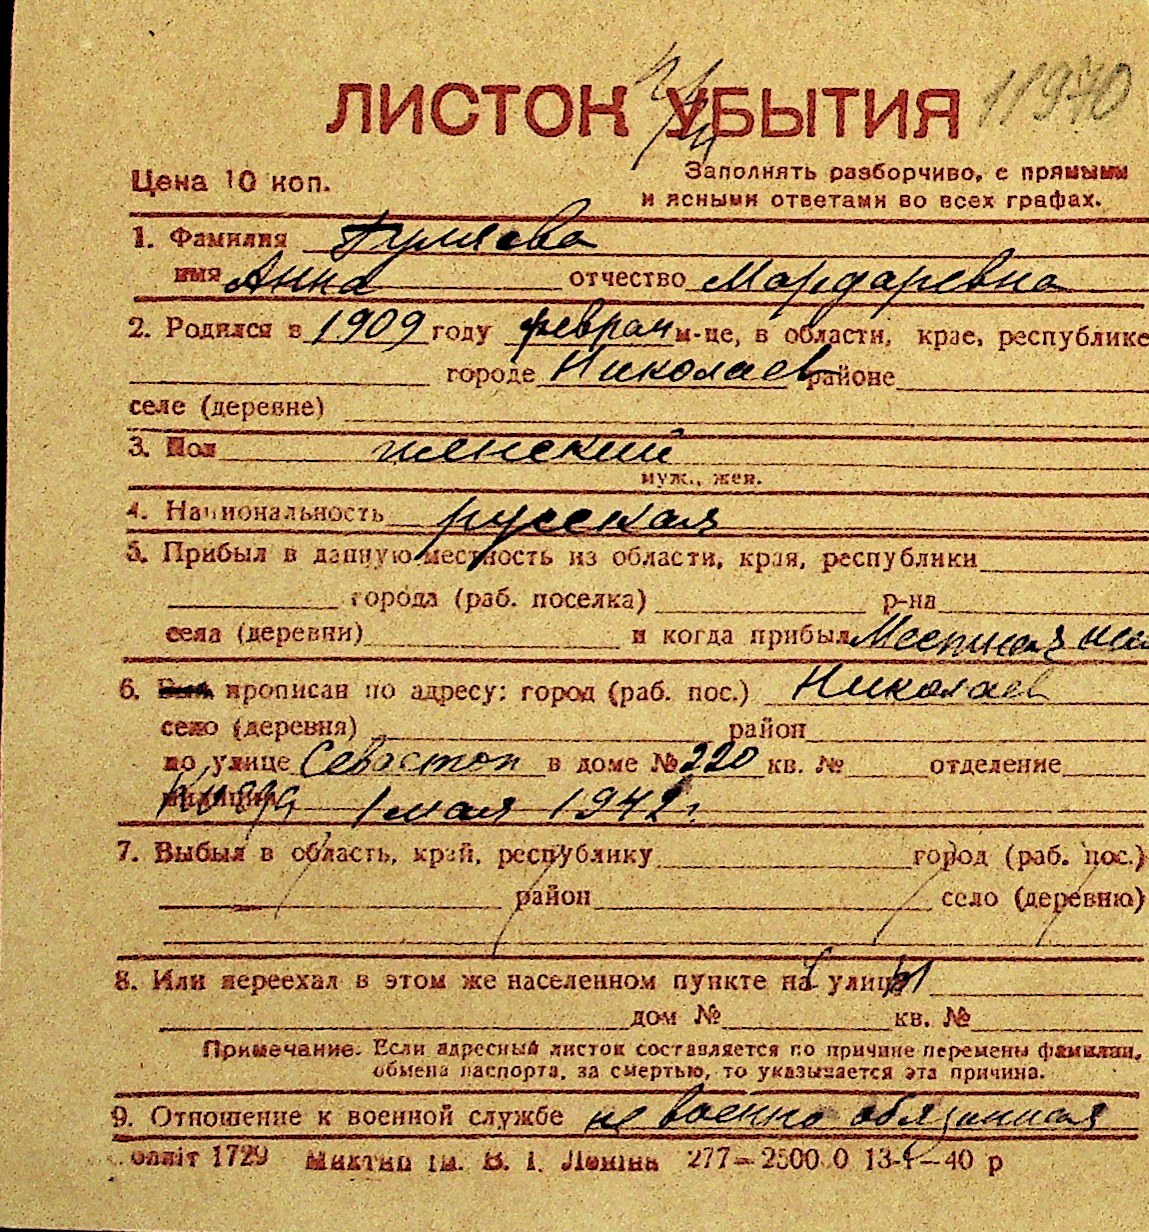 11970
ЛИСТОК УБЫТИЯ
Цена 10 коп.
Заполнять разборчиво, с прямыми
и ясными ответами во всех графах.
1. Фамилия Гуляева
имя Анна отчество Мардаревна
2. Родился в 1909 году феврал м-це, в области, крае, республике
городе Николаев районе
селе (деревне)
3. Пол женский
муж., жен.
4. Национальность русская
5. Прибыл в данную местность из области, края, республики
города (раб. поселка) р-на
села (деревни) и когда прибыл Местная
6. прописан по адресу: город (раб. пос.) Николаев
село (деревня) район
по улице Севастоп в доме № 220 кв. № отделение
милиции когда 1 мая 1942 г.
7. Выбыл в область, край, республику город (раб. пос.)
район село (деревню)
8. Или переехал в этом же населенном пункте на улицу
дом № кв. №
Примечание. Если адресный листок составляется по причине перемены фамилии,
обмена паспорта, за смертью, то указывается эта причина.
9. Отношение к военной службе не военно обязанная
облліт 1729 Миктип ім. В. І. Леніна 277—2500 0 13-І—40 р